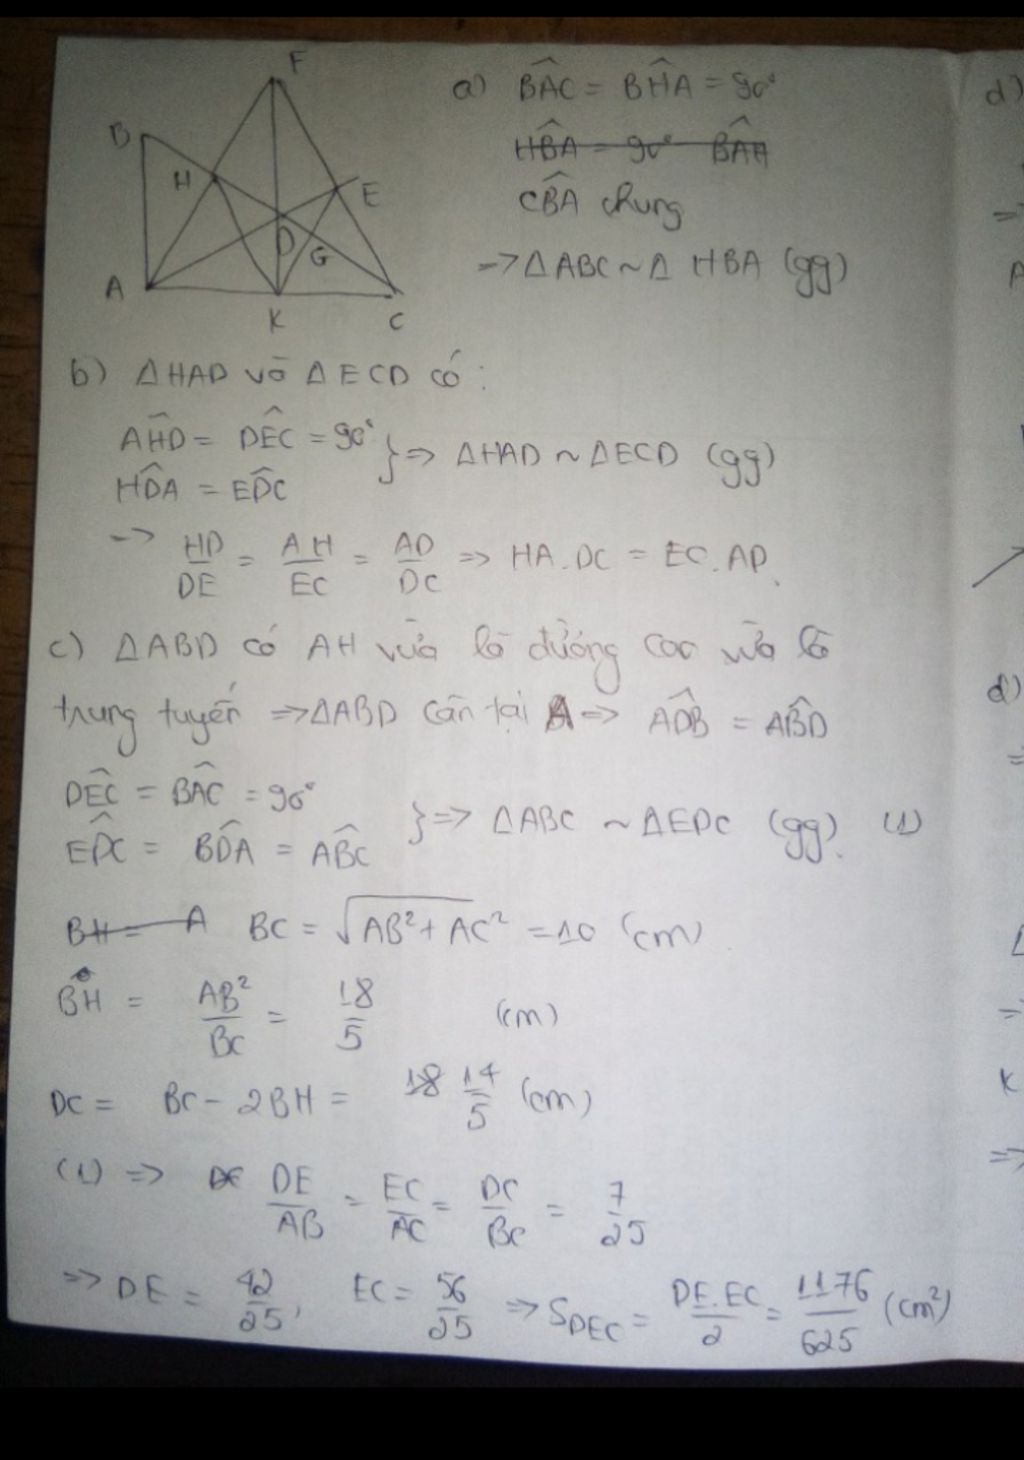 F
B
H
E
D
G
A
K
C
a) BÂC = BĤA = 90°
HB̂A = 90° BÂH
CB̂A chung
=> ΔABC ~ Δ HBA (gg)
b) ΔHAD và ΔECD có:
AĤD = DÊC = 90°
HD̂A = ED̂C
} => ΔHAD ~ ΔECD (gg)
=> HD/DE = AH/EC = AD/DC => HA.DC = EC.AD.
c) ΔABD có AH vừa là đường cao vừa là
trung tuyến => ΔABD cân tại A => AD̂B = AB̂D
DÊC = BÂC = 90°
ED̂C = BD̂A = AB̂C
} => ΔABC ~ ΔEDC (gg). (1)
BH = A BC = √(AB²+AC²) = 10 (cm)
BH = AB²/BC = 18/5 (cm)
DC = BC - 2BH = 18 14/5 (cm)
(1) => DE DE/AB = EC/AC = DC/BC = 7/25
=> DE = 42/25, EC = 56/25 => S_DEC = DE.EC/2 = 1176/625 (cm²)
d)
=>
A
d)
=
=>
K
=>